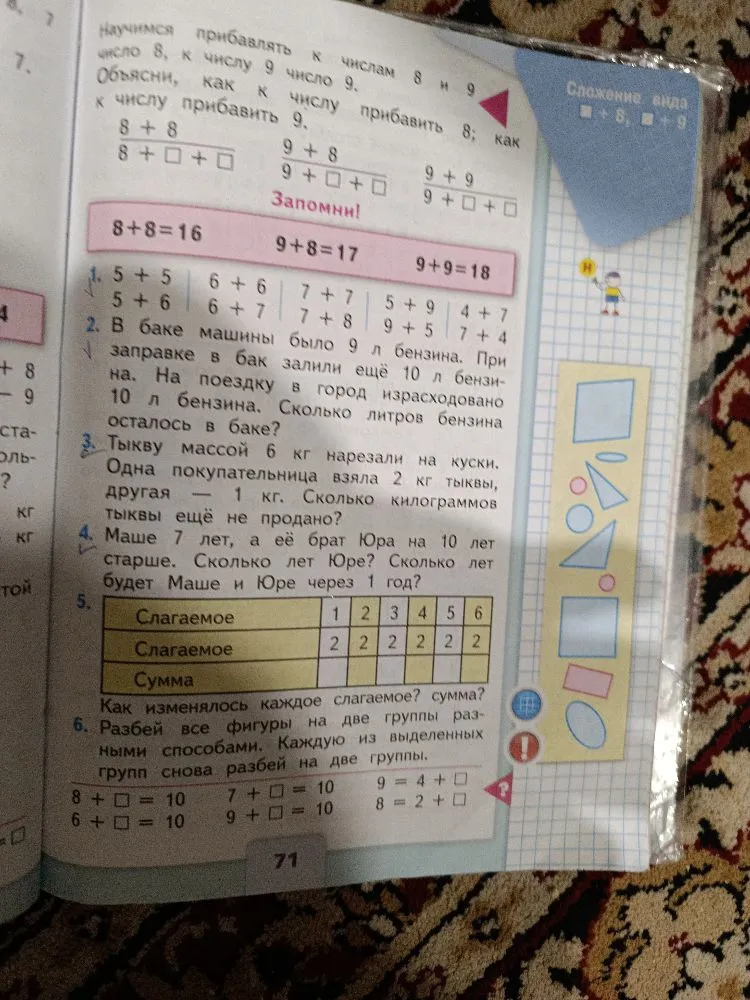 8, 7
7.
Научимся прибавлять к числам 8 и 9
число 8, к числу 9 число 9.
Объясни, как к числу прибавить 8; как
к числу прибавить 9.
Сложение вида
■ + 8, ■ + 9
8 + 8 9 + 8 9 + 9
8 + □ + □ 9 + □ + □ 9 + □ + □
Запомни!
8+8=16 9+8=17 9+9=18
Н
1. 5 + 5 6 + 6 7 + 7 5 + 9 4 + 7
5 + 6 6 + 7 7 + 8 9 + 5 7 + 4
2. В баке машины было 9 л бензина. При
заправке в бак залили ещё 10 л бензи-
на. На поездку в город израсходовано
10 л бензина. Сколько литров бензина
осталось в баке?
3. Тыкву массой 6 кг нарезали на куски.
Одна покупательница взяла 2 кг тыквы,
другая — 1 кг. Сколько килограммов
тыквы ещё не продано?
4. Маше 7 лет, а её брат Юра на 10 лет
старше. Сколько лет Юре? Сколько лет
будет Маше и Юре через 1 год?
5. Слагаемое 1 2 3 4 5 6
Слагаемое 2 2 2 2 2 2
Сумма
Как изменялось каждое слагаемое? сумма?
6. Разбей все фигуры на две группы раз-
ными способами. Каждую из выделенных
групп снова разбей на две группы.
!
8 + □ = 10 7 + □ = 10 9 = 4 + □
6 + □ = 10 9 + □ = 10 8 = 2 + □
?
71
4
+ 8
− 9
ста-
оль-
?
кг
кг
той
= □